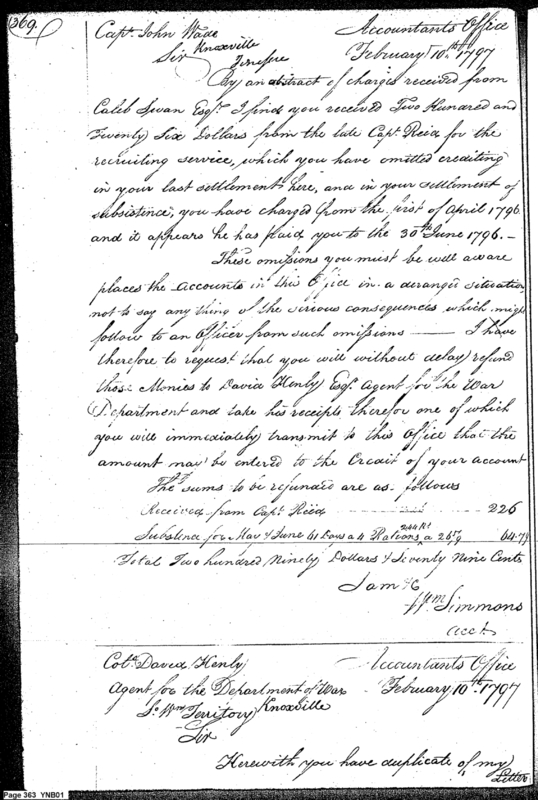 369.
Capt. John Wade
Accountants Office
Sir Knoxville
Tenessee
February 10th 1797
By an abstract of charges received from
Caleb Swan Esqr. I find you received Two Hundred and
Twenty Six Dollars from the late Capt. Reid for the
recruiting service, which you have omitted crediting
in your last settlement here, and in your settlement of
subsistence, you have charged from the first of April 1796
and it appears he has paid you to the 30th June 1796.—
These omissions you must be well aware
places the accounts in this Office in a deranged situation
not to say any thing of the serious consequences which might
follow to an Officer from such omissions — I have
therefore to request that you will without delay refund
those Monies to David Henly Esqr. Agent for the War
Department and take his receipts therefor one of which
you will immediately transmit to this Office that the
amount may be entered to the Credit of your account
The sums to be refunded are as follows
Received from Capt. Reid 226
Subsistence for May & June 61 Days a 4 Rations 244 Rs a 26 64.79
Total Two hundred Ninety Dollars & Seventy Nine Cents
I am &c
Wm Simmons
Acct.
Colo. David Henly
Accountants Office
Agent for the Department of War
February 10th 1797
So. Wn. Territory Knoxville
Sir
Herewith you have duplicate of my
Letter
Page 363 YNB01